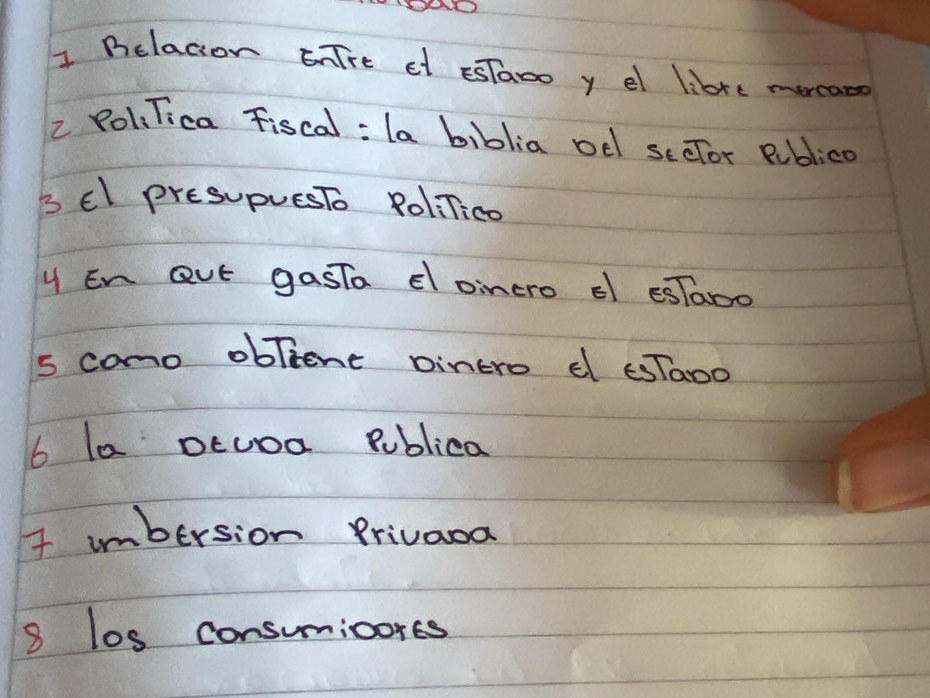 1 Relacion Entre el estado y el libre mercado
2 Politica Fiscal: la biblia del sector Publico
3 El presupuesto Politico
4 En Que gasta El dinero el estado
5 como obtiene dinero el estado
6 la deuda Publica
7 imbersion Privada
8 los consumidores